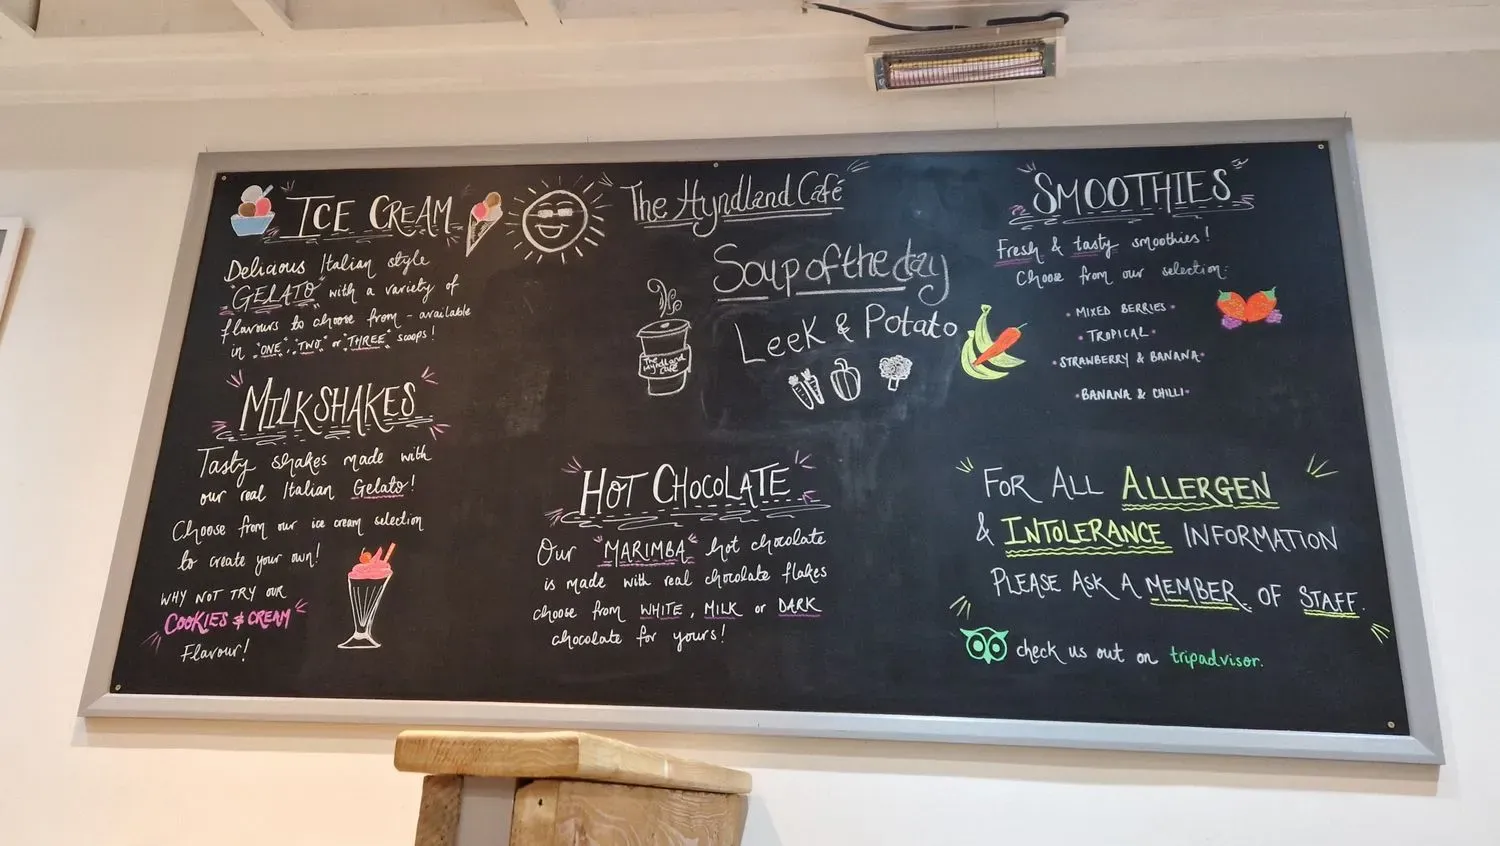 ICE CREAM
Delicious Italian style
"GELATO" with a variety of
flavours to choose from - available
in "ONE", "TWO" or "THREE" scoops!
MILKSHAKES
Tasty shakes made with
our real Italian Gelato!
Choose from our ice cream selection
to create your own!
WHY NOT TRY OUR
COOKIES & CREAM
Flavour!
The Hyndland Café
Soup of the day
Leek & Potato
The
Hyndland
Café
HOT CHOCOLATE
Our "MARIMBA" hot chocolate
is made with real chocolate flakes
choose from WHITE, MILK or DARK
chocolate for yours!
SMOOTHIES
Fresh & tasty smoothies!
Choose from our selection:
• MIXED BERRIES •
• TROPICAL •
• STRAWBERRY & BANANA •
• BANANA & CHILLI •
FOR ALL ALLERGEN
& INTOLERANCE INFORMATION
PLEASE ASK A MEMBER OF STAFF.
check us out on tripadvisor.